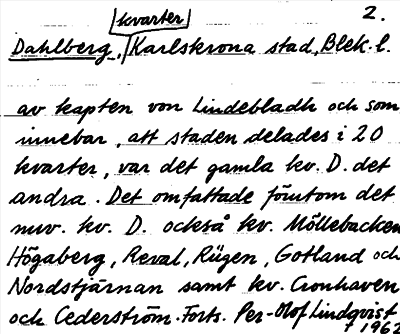 kvarter 2.
Dahlberg, Karlskrona stad, Blek. l.
av kapten von Lindebladh och som
innebar, att staden delades i 20
kvarter, var det gamla kv. D. det
andra. Det omfattade förutom det
nuv. kv. D. också kv. Möllebacken
Högaberg, Reval, Rügen, Gotland och
Nordstjärnan samt kv. Cronhaven
och Cederström. Forts. Per-Olof Lindqvist
1962